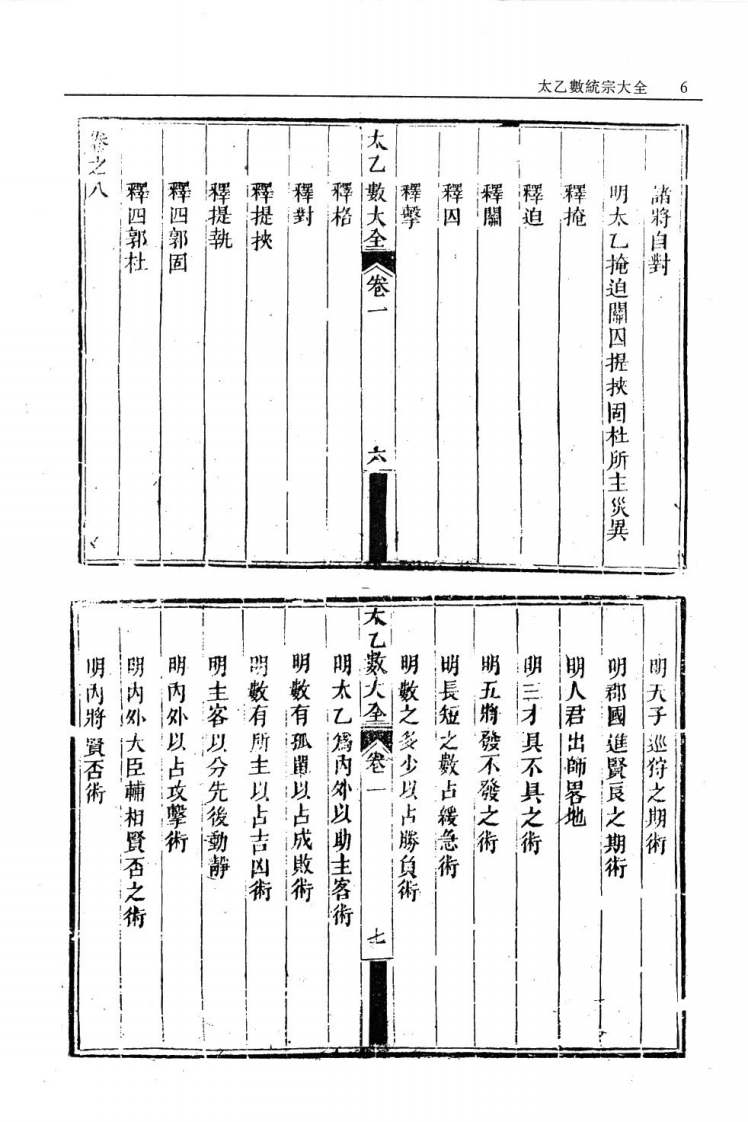 太乙數統宗大全 6
諸將自對
明太乙掩迫關囚提挾固杜所主災異
釋掩
釋迫
釋關
釋囚
釋擊
太乙數大全 卷一 六
釋格
釋對
釋提挾
釋提執
釋四郭固
釋四郭杜
卷之八
明天子巡狩之期術
明郡國進賢良之期術
明人君出師畧地
明三才具不具之術
明五將發不發之術
明長短之數占緩急術
明數之多少以占勝負術
太乙數大全 卷一 七
明太乙為內外以助主客術
明數有孤單以占成敗術
明數有所主以占吉凶術
明主客以分先後動靜
明內外以占攻擊術
明內外大臣輔相賢否之術
明內將賢否術